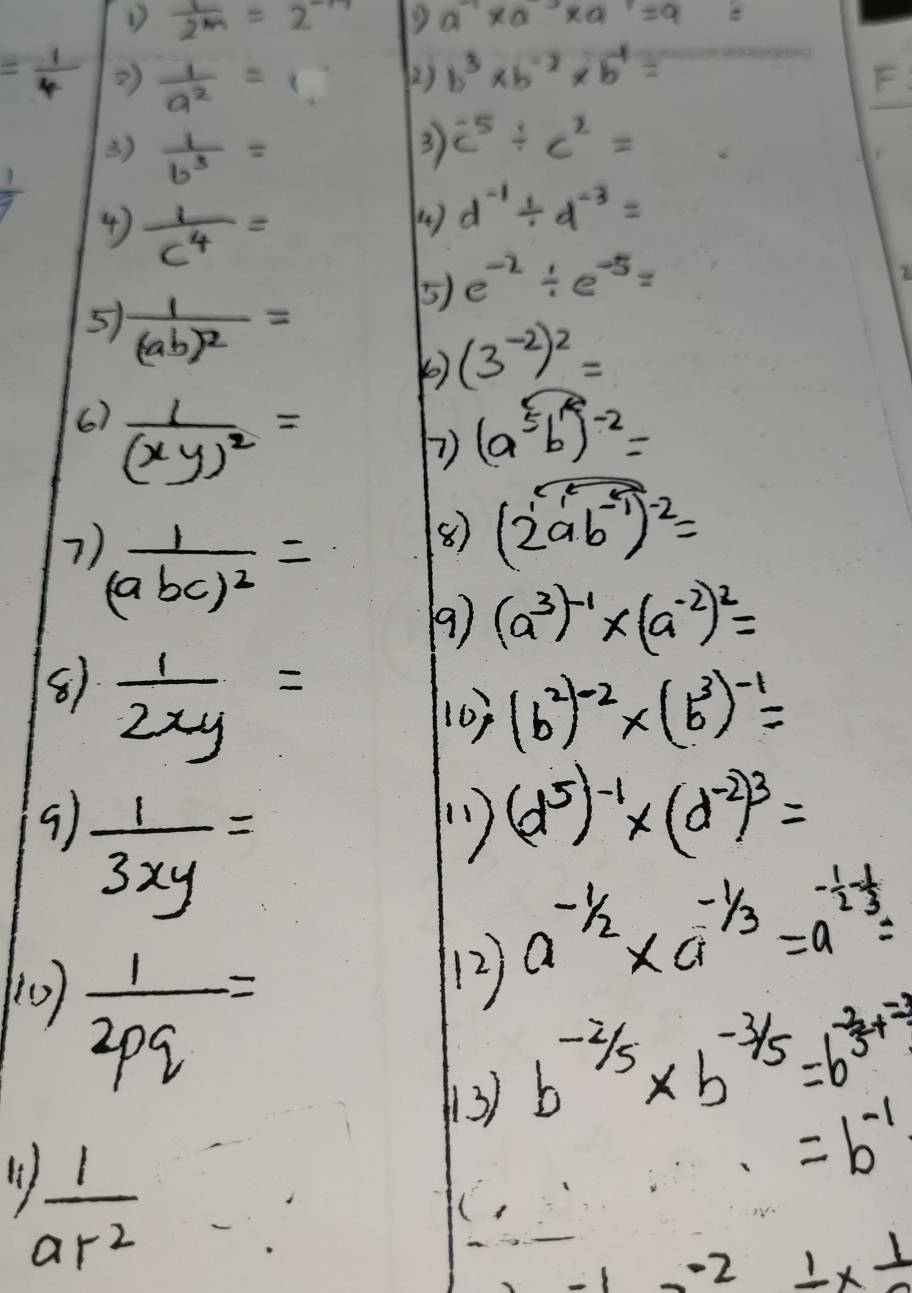 = 1/4
1) 1/2ᵐ = 2⁻ᵐ
2) 1/a² =
3) 1/b³ =
4) 1/c⁴ =
5) 1/(ab)² =
6) 1/(xy)² =
7) 1/(abc)² =
8) 1/2xy =
9) 1/3xy =
10) 1/2pq =
11) 1/ar²
2) b³ × b⁻² × b⁻¹ =
3) c⁻⁵ ÷ c² =
4) d⁻¹ ÷ d⁻³ =
5) e⁻² ÷ e⁻⁵ =
6) (3⁻²)² =
7) (a⁵b¹)⁻² =
8) (2¹a¹b⁻¹)⁻² =
9) (a³)⁻¹ × (a⁻²)² =
10) (b²)⁻² × (b³)⁻¹ =
11) (d⁵)⁻¹ × (d⁻²)³ =
12) a^-1/2 × a^-1/3 = a^-1/2-1/3 =
13) b^-2/5 × b^-3/5 = b^-2/5+-3
= b⁻¹